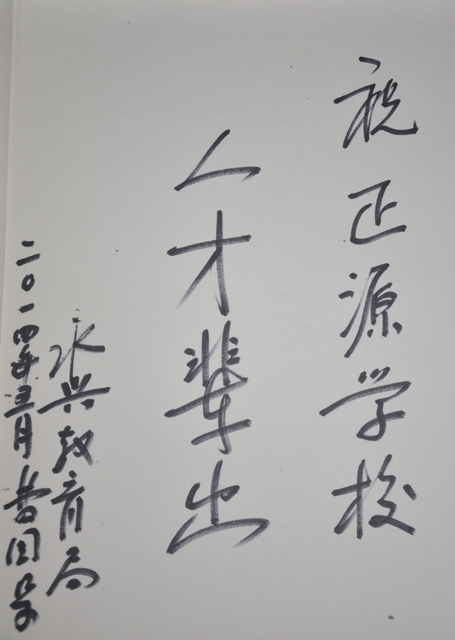 祝正源学校
人才辈出
永兴教育局
二〇一四年三月